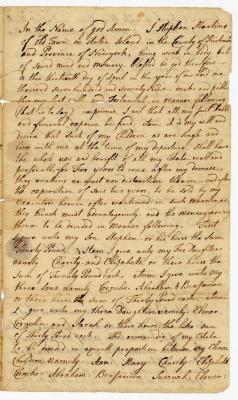 In the Name of god Amen. I Stephen Martino
of Old Town on Staten Island in the County of Richmond
and Province of Newyork, being weak in body but
of Sound mind and memory blessed be god therefore
this thirteenth day of April in the year of our Lord one
thousand Seven hundred and Seventy make and publish
this my last will and Testament, in manner following
that is to Say imprimis, I will that all my just Debts
and funeral expence be paid. Item it is my will and
desire that Such of my Children as are Single and
live with me at the time of my departure, Shall have
the whole use and benefit of all my Estate real and
personale, for Two years to come after my decease,
the expiration of Said two years, to be Sold by my
Executors herein after mentioned in Such manner as
they think most advantageously and the money arising
there to be devided in manner following. First
I give unto my Son Stephen or his heirs the Sum
Thirty Pound. Item I give unto my two Daughters
namely Charity and Elizabeth or there heirs the
Sum of Twenty Pound each. Item I give unto my
three Sons namely Cornelius Abraham & Benjamin
or there heirs the Sum of Thirty Pound each. Item
I give unto my three Daughters namely Elenor
and Sarah or there heirs the like sum
of Thirty Pound each. the remainder of my Estate
to be devided in equall proportion between my Eleven
Children namely Ann Mary Charity Elizabeth
Abraham Benjamin Susanah Elenor